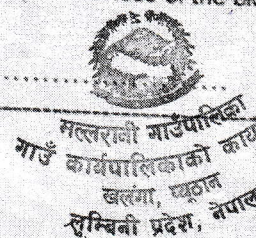 मल्लरानी गाउँपालिका
गाउँ कार्यपालिकाको
खलंगा, प्यूठान
लुम्बिनी प्रदेश, नेपाल